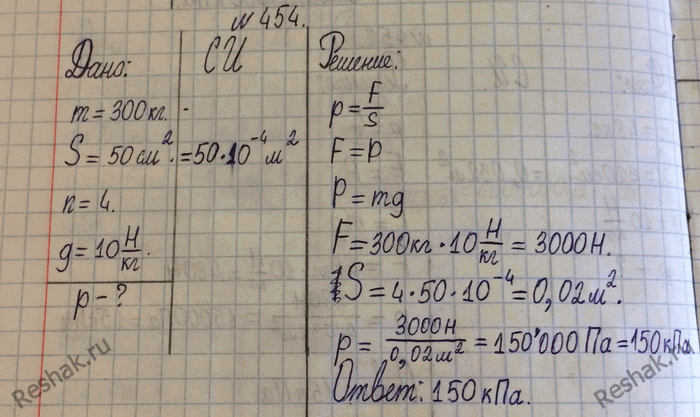 №454.
Дано:
СИ
m = 300 кг. -
S = 50 см². = 50·10⁻⁴ м²
n = 4.
g = 10 Н/кг.
p - ?
Решение:
p = F/S
F = P
P = mg
F = 300 кг · 10 Н/кг = 3000 Н.
S = 4·50·10⁻⁴ = 0,02 м².
p = 3000 Н/0,02 м² = 150'000 Па = 150 кПа
Ответ: 150 кПа.
Reshak.ru
Reshak.ru